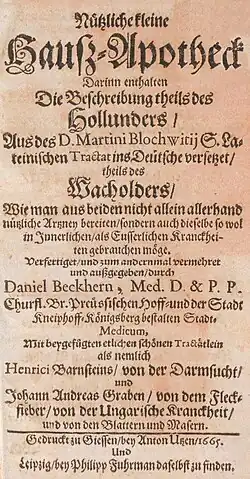 Nützliche kleine
Hauß-Apotheck
Darinn enthalten
Die Beschreibung theils des
Hollunders /
Aus des D. Martini Blochwitij S. La-
teinischen Tractat ins Deütsche versetzet /
theils des
Wacholders /
Wie man aus beiden nicht allein allerhand
nützliche Artzney bereiten / sondern auch dieselbe so wol
in Innerlichen / als Eusserlichen Kranckhei-
ten gebrauchen möge.
Verfertiget / und zum andernmal vermehret
und außgegeben / durch
Daniel Beckhern, Med. D. & P. P.
Churfl. Br. Preüssischen Hoff- und der Stadt
Kneiphoff-Königsberg bestalten Stadt-
Medicum,
Mit beygefügten etlichen schönen Tractätlein
als nemlich
Henrici Barnsteins / von der Darmsucht /
und
Johann Andreas Graben / von dem Fleck-
fieber / von der Ungarische Kranckheit /
und von den Blattern und Masern.
Gedruckt zu Giessen / bey Anton Utzen / 1665.
Und
Leipzig / bey Philipp Fuhrman daselbst zu finden.